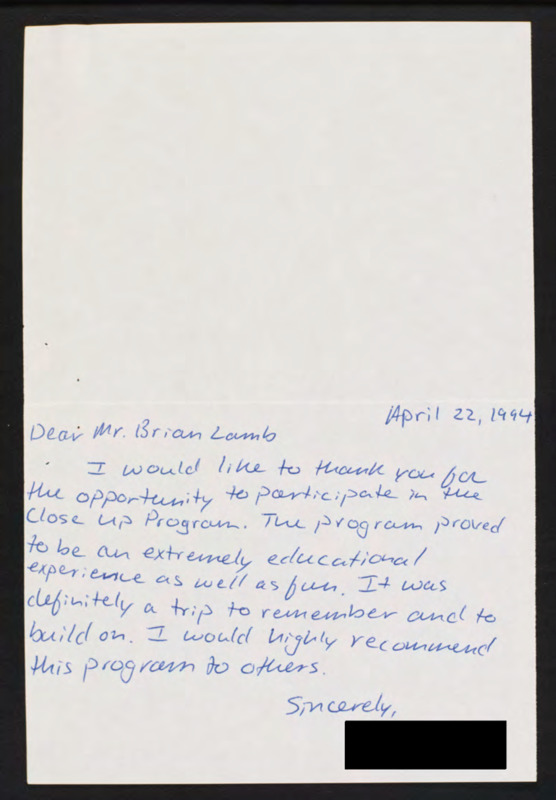 April 22, 1994
Dear Mr. Brian Lamb
I would like to thank you for
the opportunity to participate in the
Close Up Program. The program proved
to be an extremely educational
experience as well as fun. It was
definitely a trip to remember and to
build on. I would highly recommend
this program to others.
Sincerely,